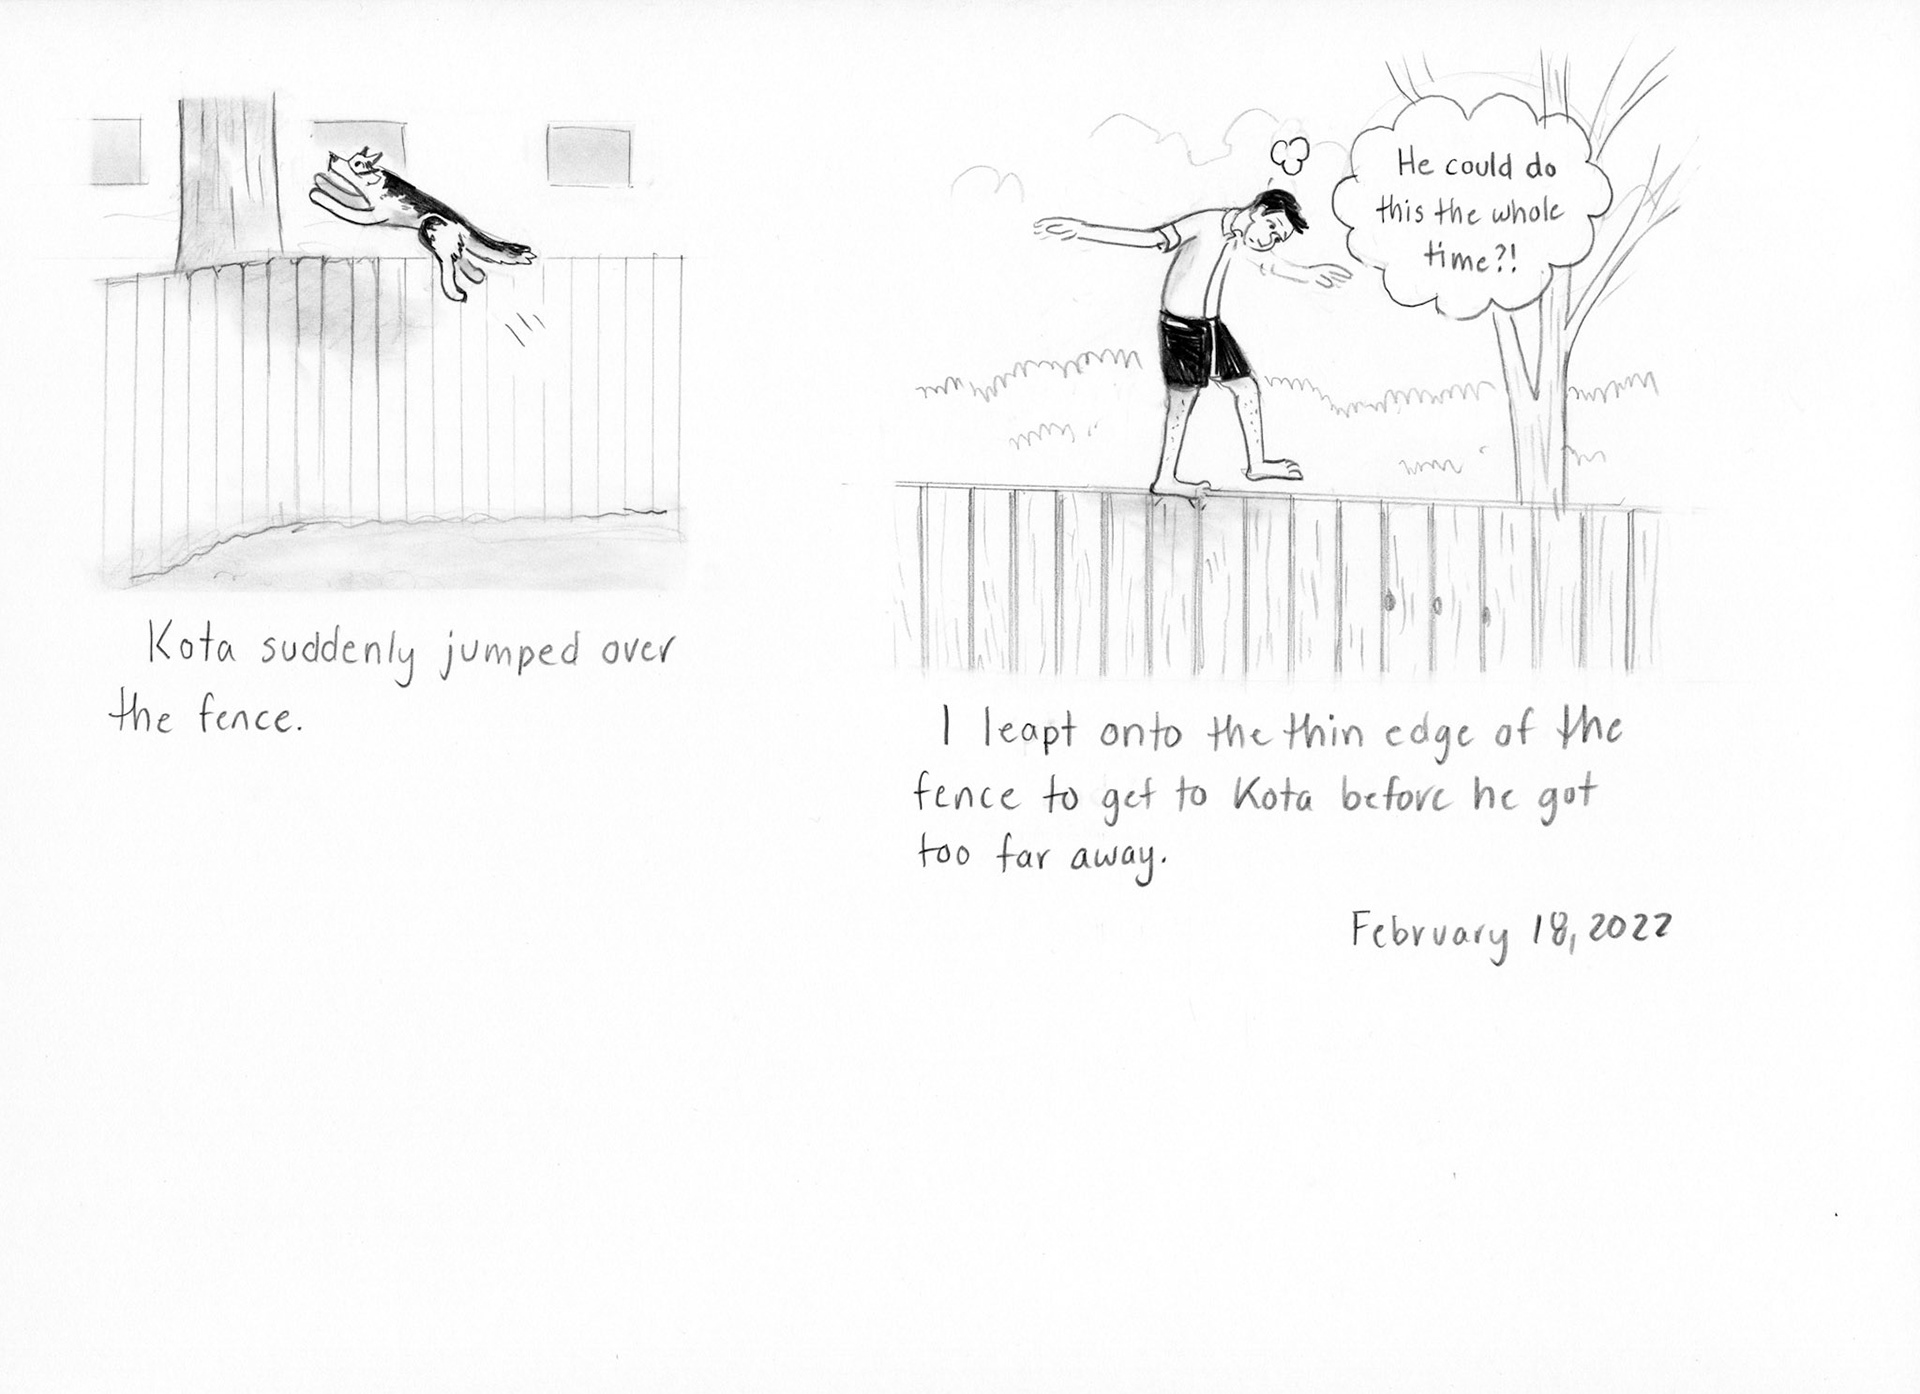 Kota suddenly jumped over
the fence.
He could do
this the whole
time?!
I leapt onto the thin edge of the
fence to get to Kota before he got
too far away.
February 18, 2022